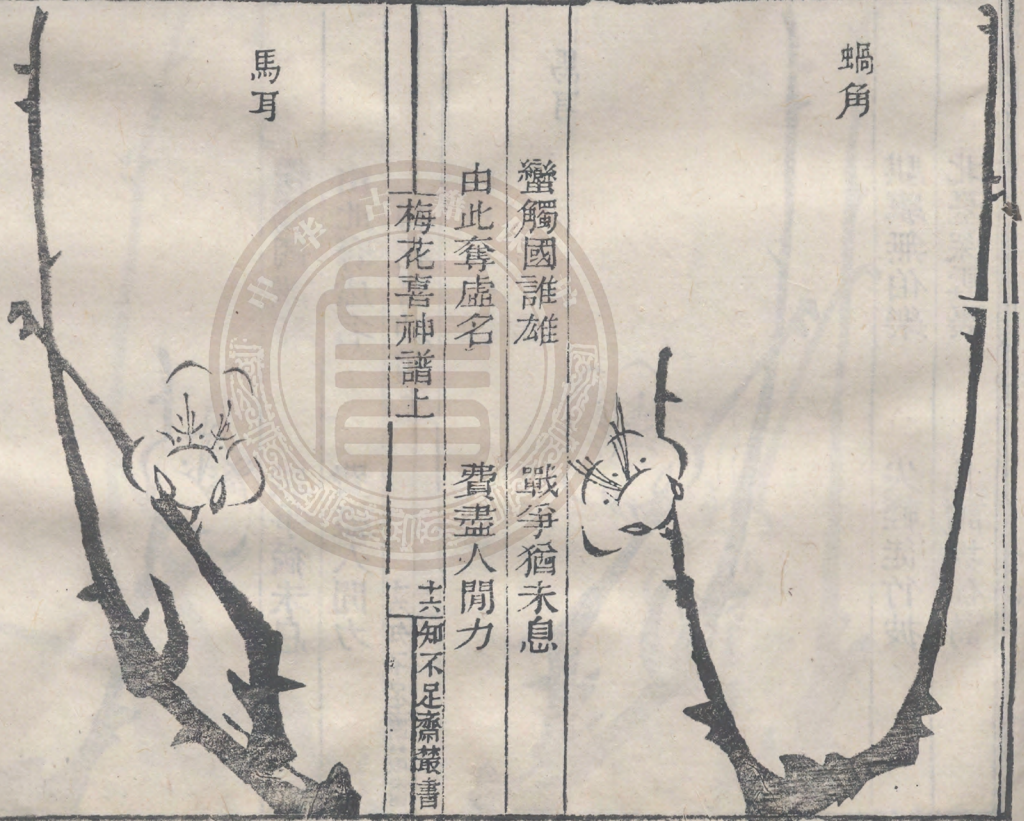 蝸角
蠻觸國誰雄　戰爭猶未息
由此奪虛名　費盡人閒力
梅花喜神譜上
十六
知不足齋叢書
馬耳